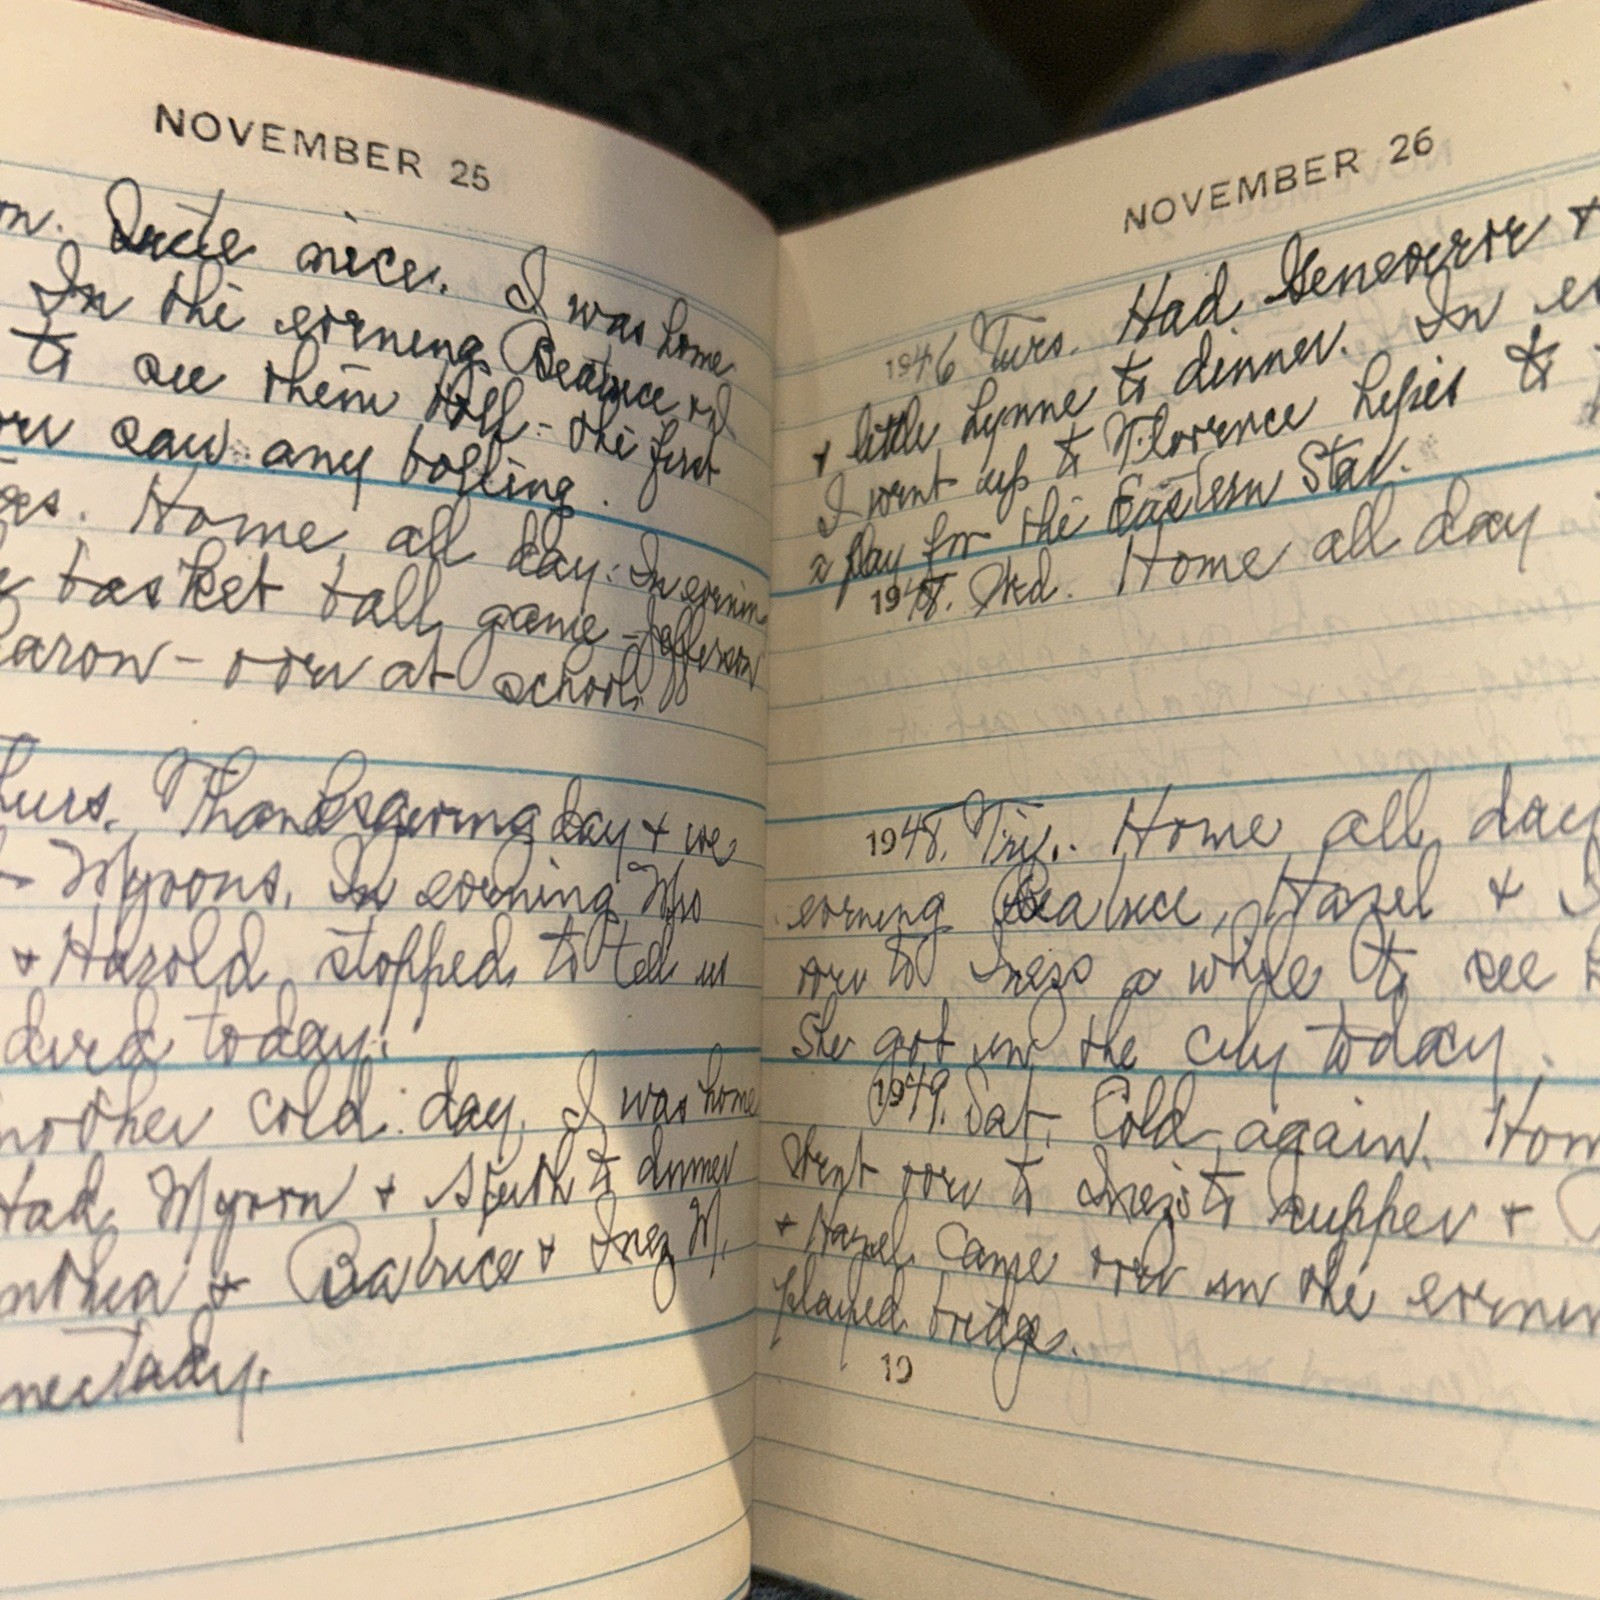 NOVEMBER 25
on. Quite nice. I was home
In the evening Beatrice and
to see them roll - the first
ever saw any bowling.
es. Home all day. In evening
basket ball game - Jefferson
aron - over at school.
hurs. Thanksgiving day & we
Myrons. In evening Mrs
& Harold stopped to tell us
died today.
nother cold day. I was home
Had Myron & Ruth to dinner
nthea & Beatrice & Inez M.
nectady.
NOVEMBER 26
1946 Tues. Had Genevieve &
& little Lynne to dinner. In ev
I went up to Florence to
a play for the Eastern Star.
194 Wed. Home all day
1948. Fri. Home all day
evening Beatrice, Hazel &
over to Inezs a while to see
She got in the city today.
1949. Sat. Cold again. Hom
Went over to Inez's to supper &
& Hazel came over in the evenin
played bridge.
19